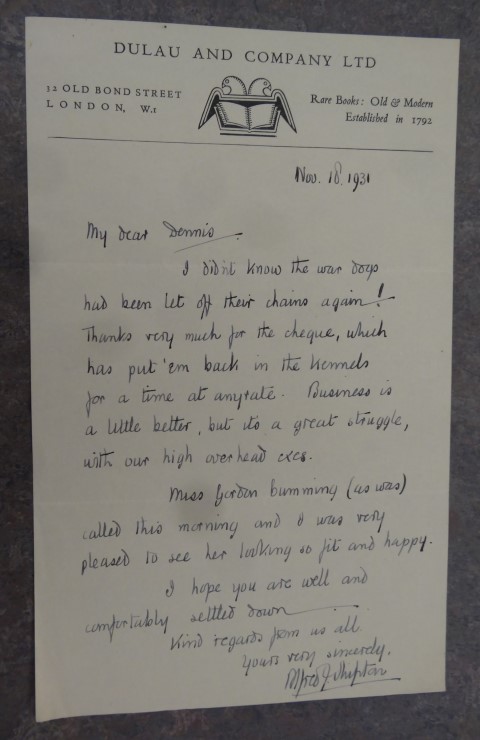 DULAU AND COMPANY LTD
32 OLD BOND STREET
LONDON, W.1
Rare Books: Old & Modern
Established in 1792
Nov. 18. 1931
My dear Dennis
I didn't know the war dogs
had been let off their chains again!
Thanks very much for the cheque, which
has put 'em back in the kennels
for a time at anyrate. Business is
a little better, but its a great struggle,
with our high overhead exes.
Miss Gordon (as was)
called this morning and I was very
pleased to see her looking so fit and happy.
I hope you are well and
comfortably settled down
Kind regards from us all.
Yours very sincerely.